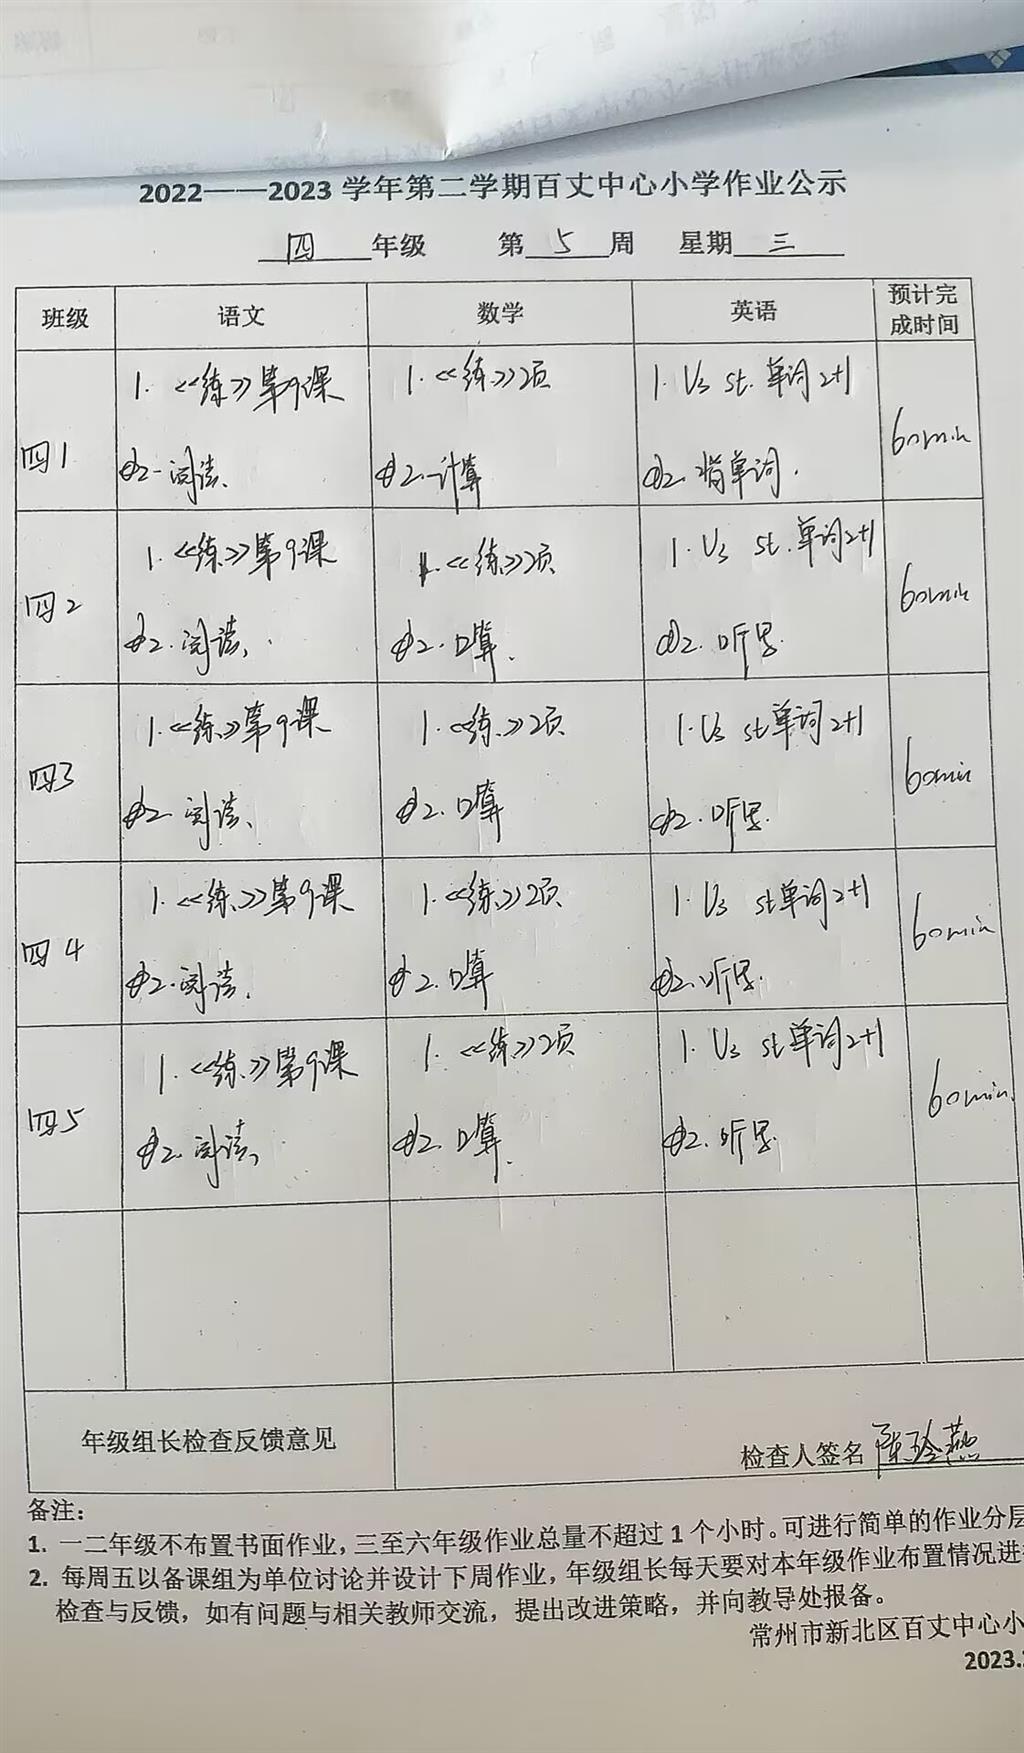 2022——2023 学年第二学期百丈中心小学作业公示
四 年级 第 5 周 星期 三
班级 语文 数学 英语 预计完成时间
四1 1.《练》第9课 1.《练》2页 1. U3 st. 单词2+1 60min
2. 阅读. 2. 计算 2. 单词.
四2 1.《练》第9课 1.《练》2页 1. U3 st. 单词2+1 60min
2. 阅读. 2. 口算. 2. 听写.
四3 1.《练》第9课 1.《练》2页 1. U3 st 单词2+1 60min
2. 阅读. 2. 口算 2. 听写.
四4 1.《练》第9课 1.《练》2页 1. U3 st 单词2+1 60min
2. 阅读. 2. 口算 2. 听写.
四5 1.《练》第9课 1.《练》2页 1. U3 st 单词2+1 60min.
2. 阅读. 2. 口算. 2. 听写.
年级组长检查反馈意见 检查人签名 陈玲燕
备注：
1. 一二年级不布置书面作业，三至六年级作业总量不超过 1 个小时。可进行简单的作业分层
2. 每周五以备课组为单位讨论并设计下周作业，年级组长每天要对本年级作业布置情况进
检查与反馈，如有问题与相关教师交流，提出改进策略，并向教导处报备。
常州市新北区百丈中心小
2023.